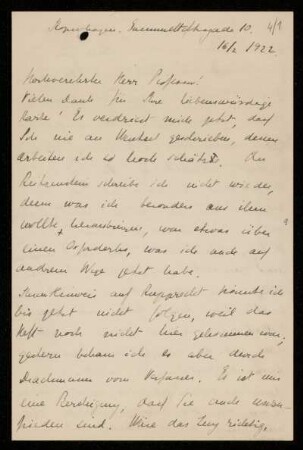 Kopenhagen. 10. 4/1
16/2 1922.
Hochverehrter Herr Professor!
Vielen Dank für Ihre liebenswürdige
Karte! Es verdriesst mich jetzt, dass
ich nie an geschrieben, dessen
Arbeiten ich so hoch schätze. An
schreibe ich nicht wieder,
denn was ich besonders aus ihm
wollte herausbringen, war etwas über
einen, was ich auch auf
anderem Wege jetzt habe.
Ihrem Hinweis auf Ruprecht konnte ich
bis jetzt nicht folgen, weil das
Heft noch nicht hier gekommen war;
gestern bekam ich es aber durch
Drachmann vom Verfasser. Es ist mir
eine Beruhigung, dass Sie auch unzu-
frieden sind. Wäre das Zeug richtig,